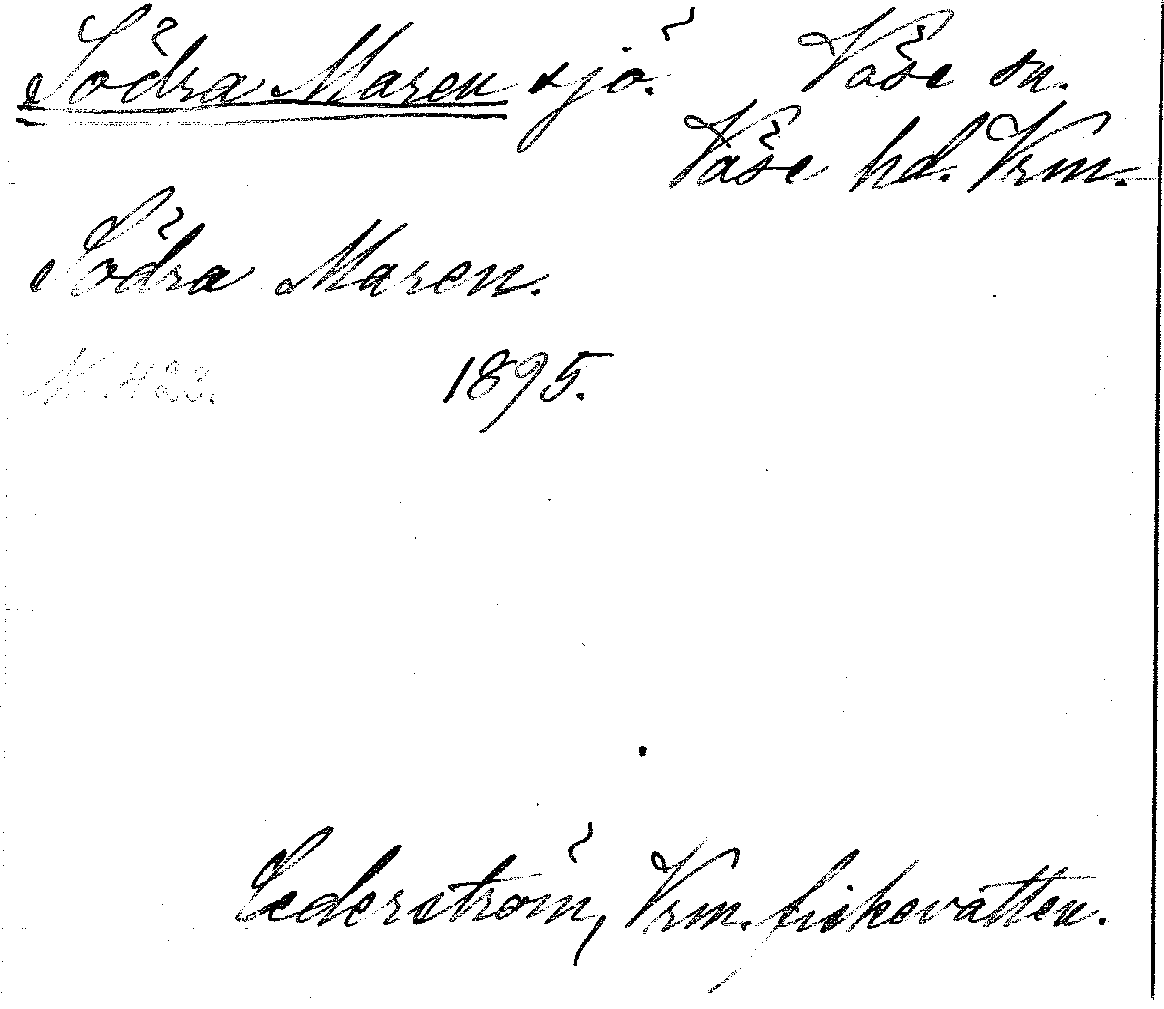 Södra Maren sjö. Väse sn.
Väse hd. Vrm.
Södra Maren.
N. 423. 1895.
Cederström, Vrm. fiskevatten.